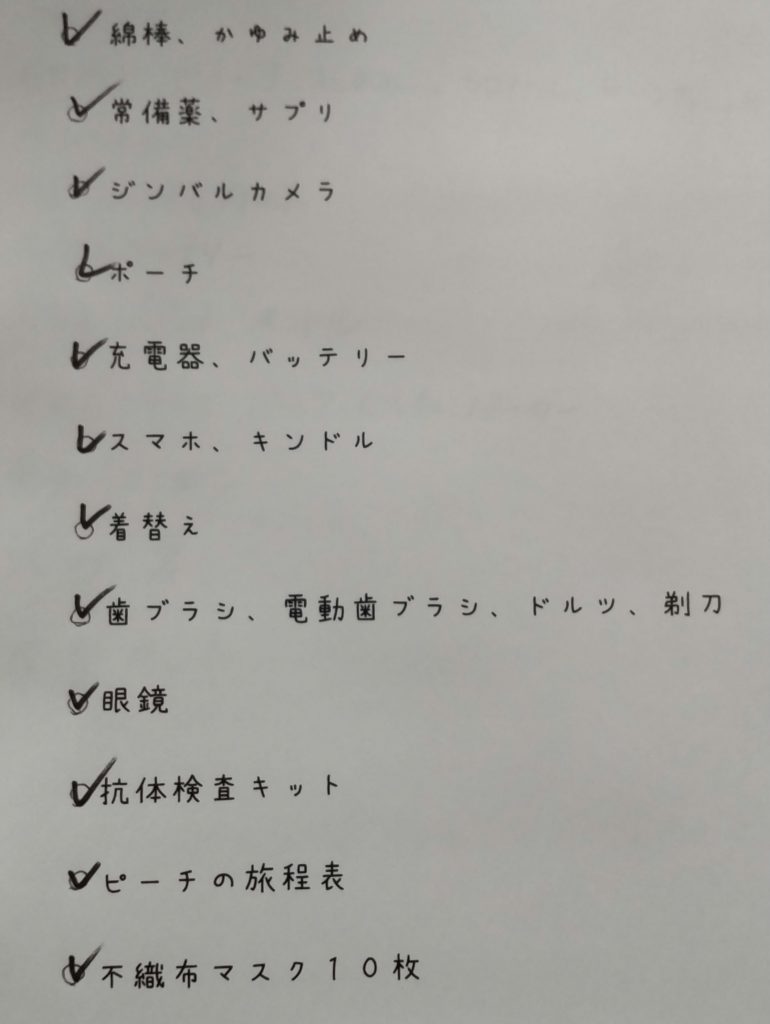 綿棒、かゆみ止め
常備薬、サプリ
ジンバルカメラ
ポーチ
充電器、バッテリー
スマホ、キンドル
着替え
歯ブラシ、電動歯ブラシ、ドルツ、剃刀
眼鏡
抗体検査キット
ピーチの旅程表
不織布マスク10枚